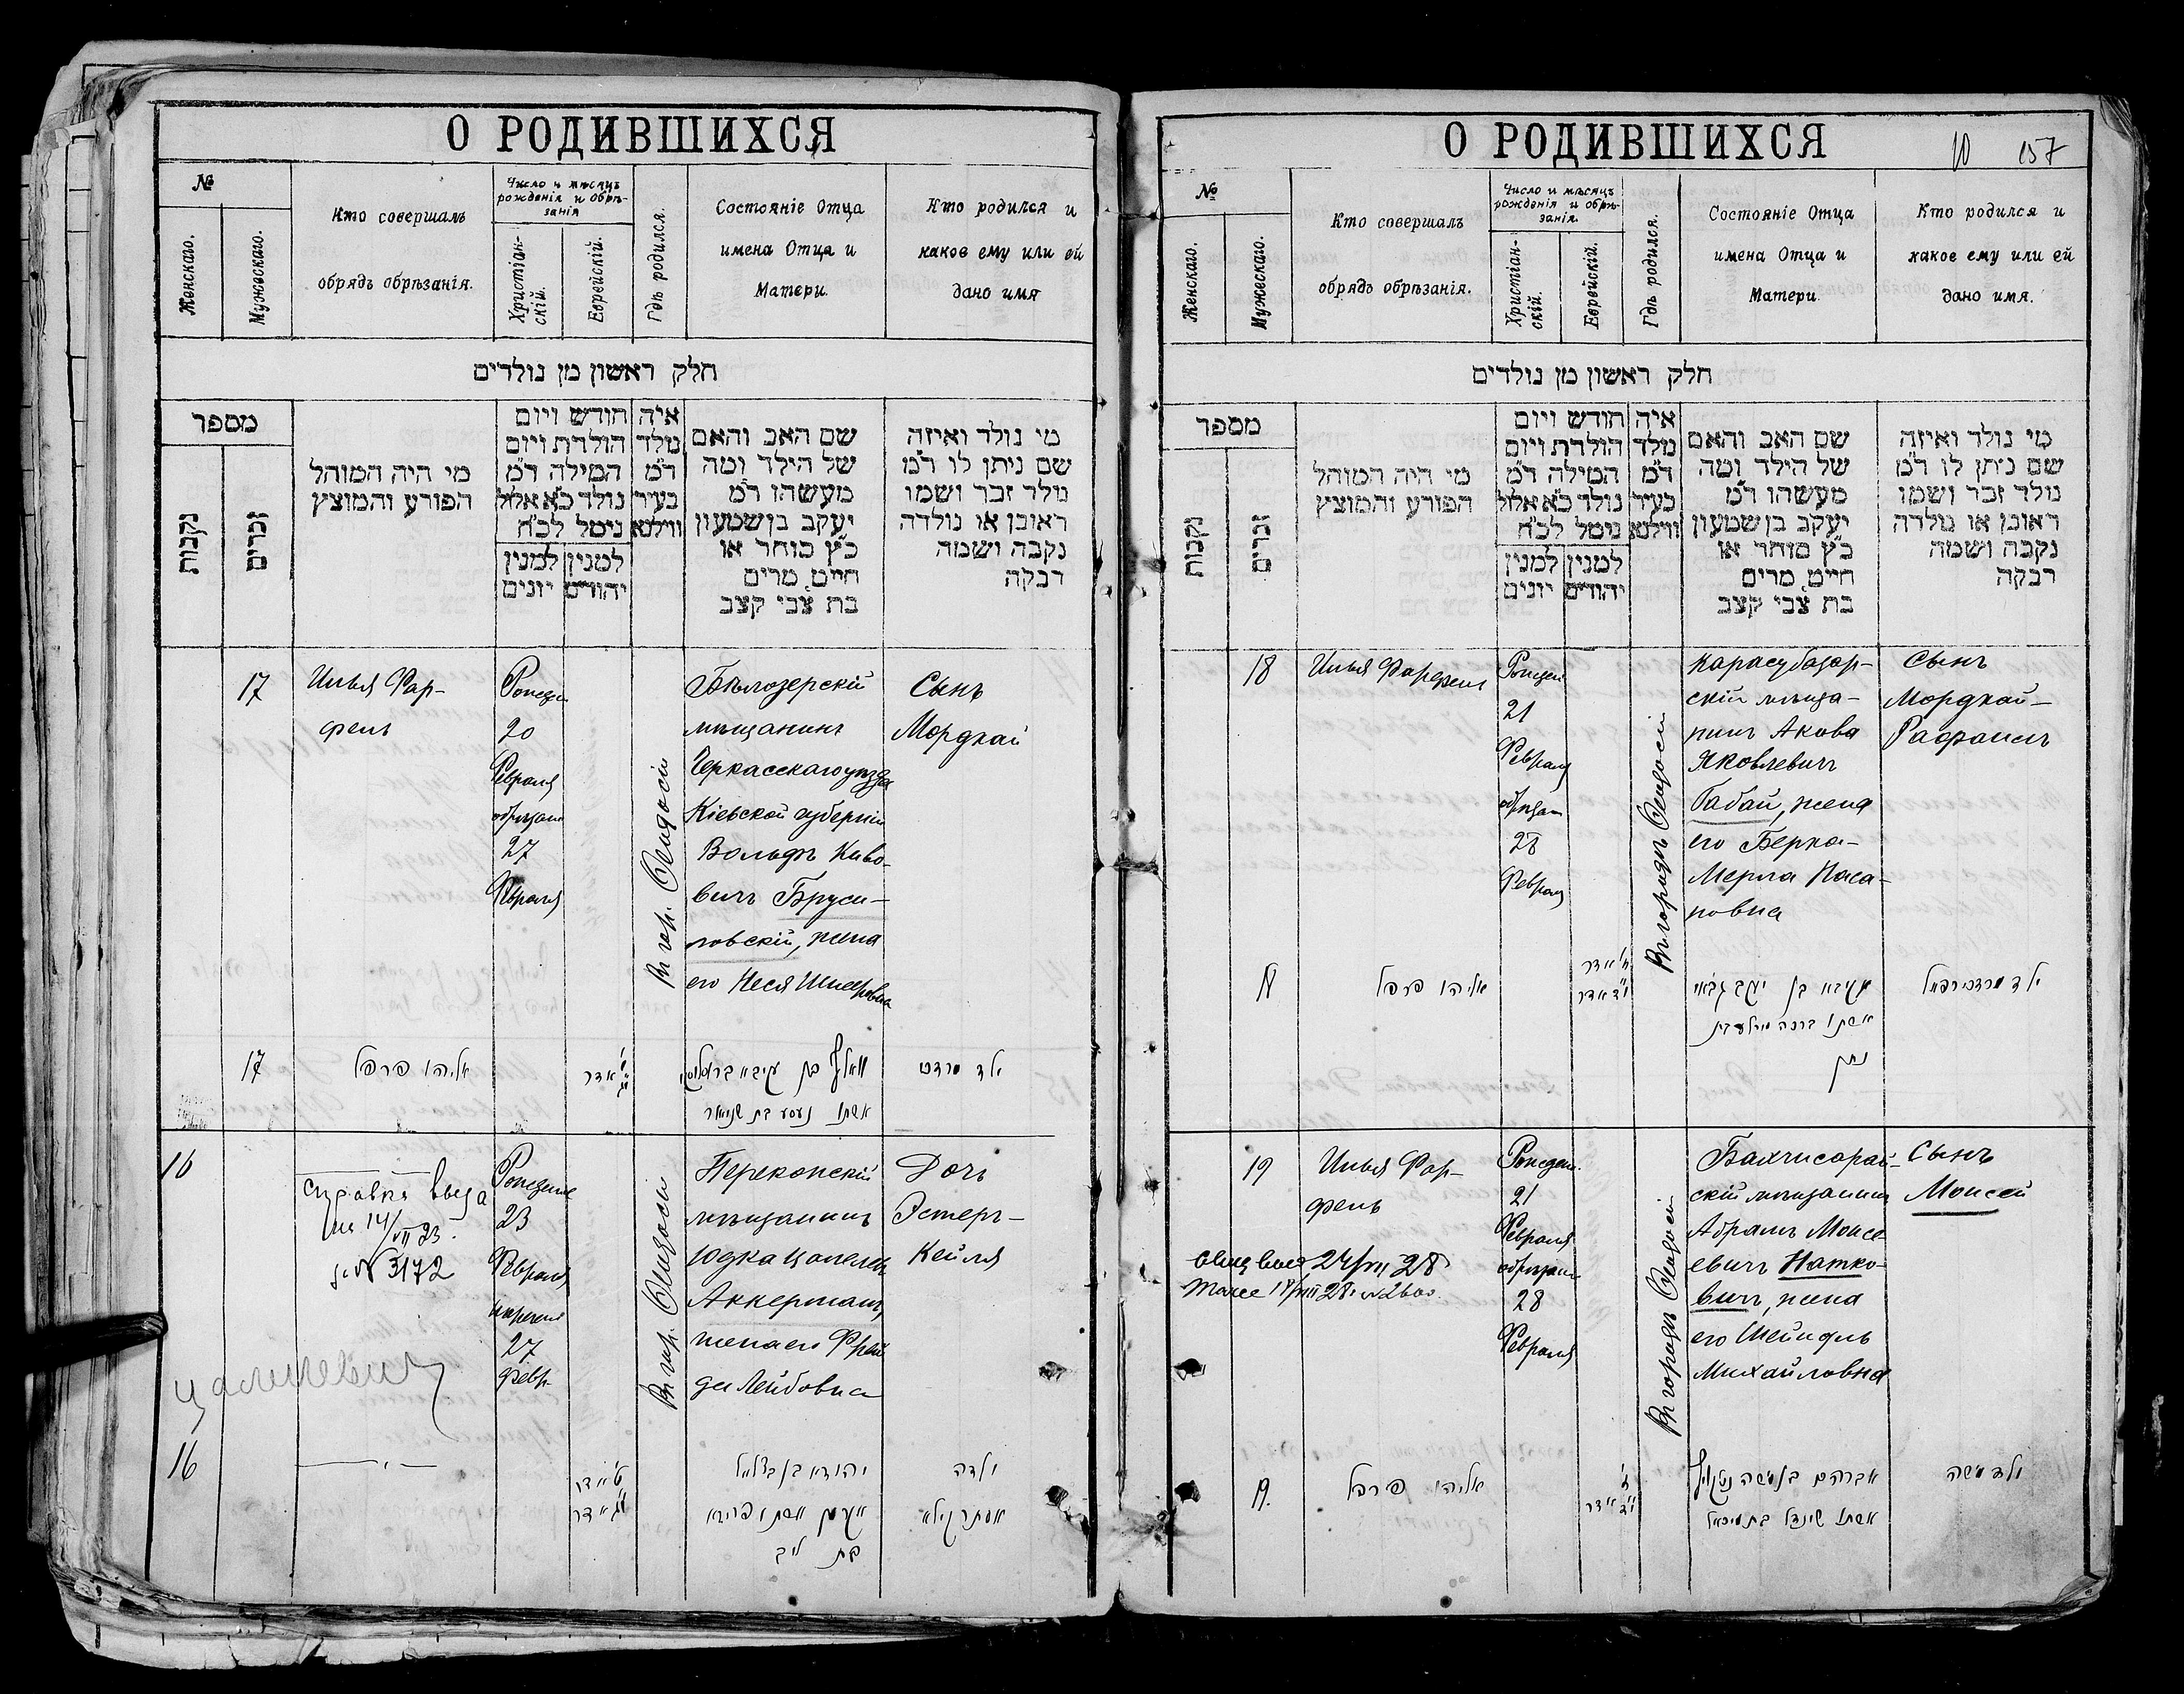 О РОДИВШИХСЯ
№
Женскаго.
Мужескаго.
Кто совершалъ
обрядъ обрѣзанія.
Число и мѣсяцъ
рожденія и обрѣ-
занія
Христіан-
скій.
Еврейскій.
Гдѣ родился.
Состояніе Отца
имена Отца и
Матери.
Кто родился и
какое ему или ей
дано имя
חלק ראשון מן נולדים
מספר
נקבות
זכרים
מי היה המוהל
הפורע והמוצץ
חודש ויום
הולדת ויום
המילה ד״מ
נולד כ״א אלול
נימל לכ״ח
למנין יהודים
למנין יונים
איה
נולד
ד״מ
בעיר
ווילנא
שם האב והאם
של הילד ומה
מעשהו ד״מ
יעקב בן שמעון
כ״ץ סוחר או
חייט, מרים
בת צבי קצב
מי נולד ואיזה
שם ניתן לו ד״מ
נולד זכר ושמו
ראובן או נולדה
נקבה ושמה
רבקה
17
Илья Фар-
фель
20
Февраля
27
Февраля
Въ гор. Ѳеодосіи
Бѣлозерскій
мѣщанинъ
Черкасскаго уѣзда
Кіевской губерніи
Вольфъ Киво-
вичъ Бруси-
ловскій, жена
его Неся
Сынъ
Мордхай
17
אליהו פרפל
אדר
אשתו נעסע בת שניאר
ילד מרדכי
16
справка выда
на 14/VII 23.
за № 3172
23
Февраля
наречена
27
Февр.
Въ гор. Ѳеодосіи
Перекопскій
мѣщанинъ
Юдка
Аккерманъ,
жена его Фрей
да Лейбовна
Дочь
Эстеръ-
Кейля
16
יהודא בן בצלאל
אקרמן אשתו פריידא
בת ליב
ילדה
אסתר קילא
О РОДИВШИХСЯ
10 157
№
Женскаго.
Мужескаго.
Кто совершалъ
обрядъ обрѣзанія.
Число и мѣсяцъ
рожденія и обрѣ-
занія.
Христіан-
скій.
Еврейскій.
Гдѣ родился.
Состояніе Отца
имена Отца и
Матери.
Кто родился и
какое ему или ей
дано имя.
חלק ראשון מן נולדים
מספר
נקבות
זכרים
מי היה המוהל
הפורע והמוצץ
חודש ויום
הולדת ויום
המילה ד״מ
נולד כ״א אלול
נימל לכ״ח
למנין יהודים
למנין יונים
איה
נולד
ד״מ
בעיר
ווילנא
שם האב והאם
של הילד ומה
מעשהו ד״מ
יעקב בן שמעון
כ״ץ סוחר או
חייט, מרים
בת צבי קצב
מי נולד ואיזה
שם ניתן לו ד״מ
נולד זכר ושמו
ראובן או נולדה
נקבה ושמה
רבקה
18
Илья Фарфель
21
Февраля
28
Февраля
Въ городѣ Ѳеодосіи
Карасубазар-
скій мѣща-
нинъ Акова
Яковлевичъ
Габай, жена
его Берха-
Мерла Наса-
новна
Сынъ
Мордхай-
Рафаилъ
אליהו פרפל
עקיבא בן יעקב גבאי
נתן
ילד מרדכי רפאל
19
Илья Фар-
фель
21
Февраля
28
Февраля
24/VII 28
Въ городѣ Ѳеодосіи
Бахчисарай-
скій мѣщанинъ
Абрамъ Моисе-
евичъ Натко-
вичъ, жена
его Шейндль
Михайловна
Сынъ
Моисей
19.
אליהו פרפל
אברהם בן משה נטקוויץ
אשתו שינדל בת מיכאל
ילד משה